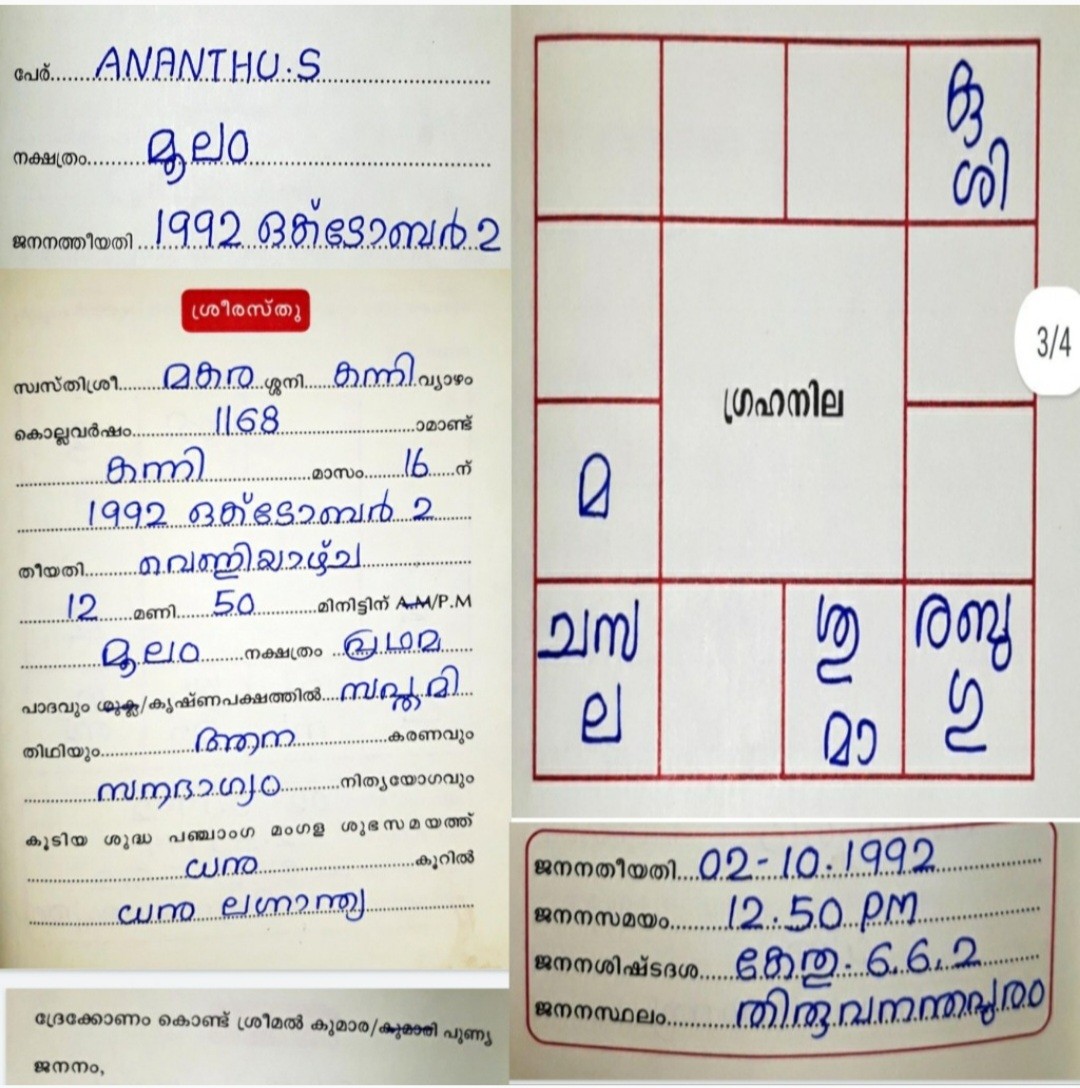 പേര്..... ANANTHU.S
നക്ഷത്രം..... മൂലം
ജനനത്തീയതി ..... 1992 ഒക്ടോബർ 2
ശ്രീരസ്തു
സ്വസ്തിശ്രീ..... മകര ശ്ശനി.... കന്നി വ്യാഴം
കൊല്ലവർഷം..... 1168 .....ാമാണ്ട്
കന്നി .....മാസം..... 16 .....ന്
1992 ഒക്ടോബർ 2
തീയതി..... വെള്ളിയാഴ്ച
12 ....മണി..... 50 .....മിനിട്ടിന് A.M/P.M
മൂലം .....നക്ഷത്രം ... പ്രഥമ
പാദവും ശുക്ല/കൃഷ്ണപക്ഷത്തിൽ.... സപ്തമി
തിഥിയും..... ആന .....കരണവും
സൗഭാഗ്യം .....നിത്യയോഗവും
കൂടിയ ശുദ്ധ പഞ്ചാംഗ മംഗള ശുഭസമയത്ത്
ധനു .....കൂറിൽ
ധനു ലഗ്നാന്ത്യ
ദ്രേക്കോണം കൊണ്ട് ശ്രീമൽ കുമാര/കുമാരി പുണ്യ
ജനനം,
കു
ശി
3/4
ഗ്രഹനില
മ
ചന്ദ്ര
ല
ശു
മാ
രബു
ഗു
ജനനതീയതി... 02-10.1992
ജനനസമയം..... 12.50 PM
ജനനശിഷ്ടദശ..... കേതു. 6.6.2
ജനനസ്ഥലം..... തിരുവനന്തപുരം